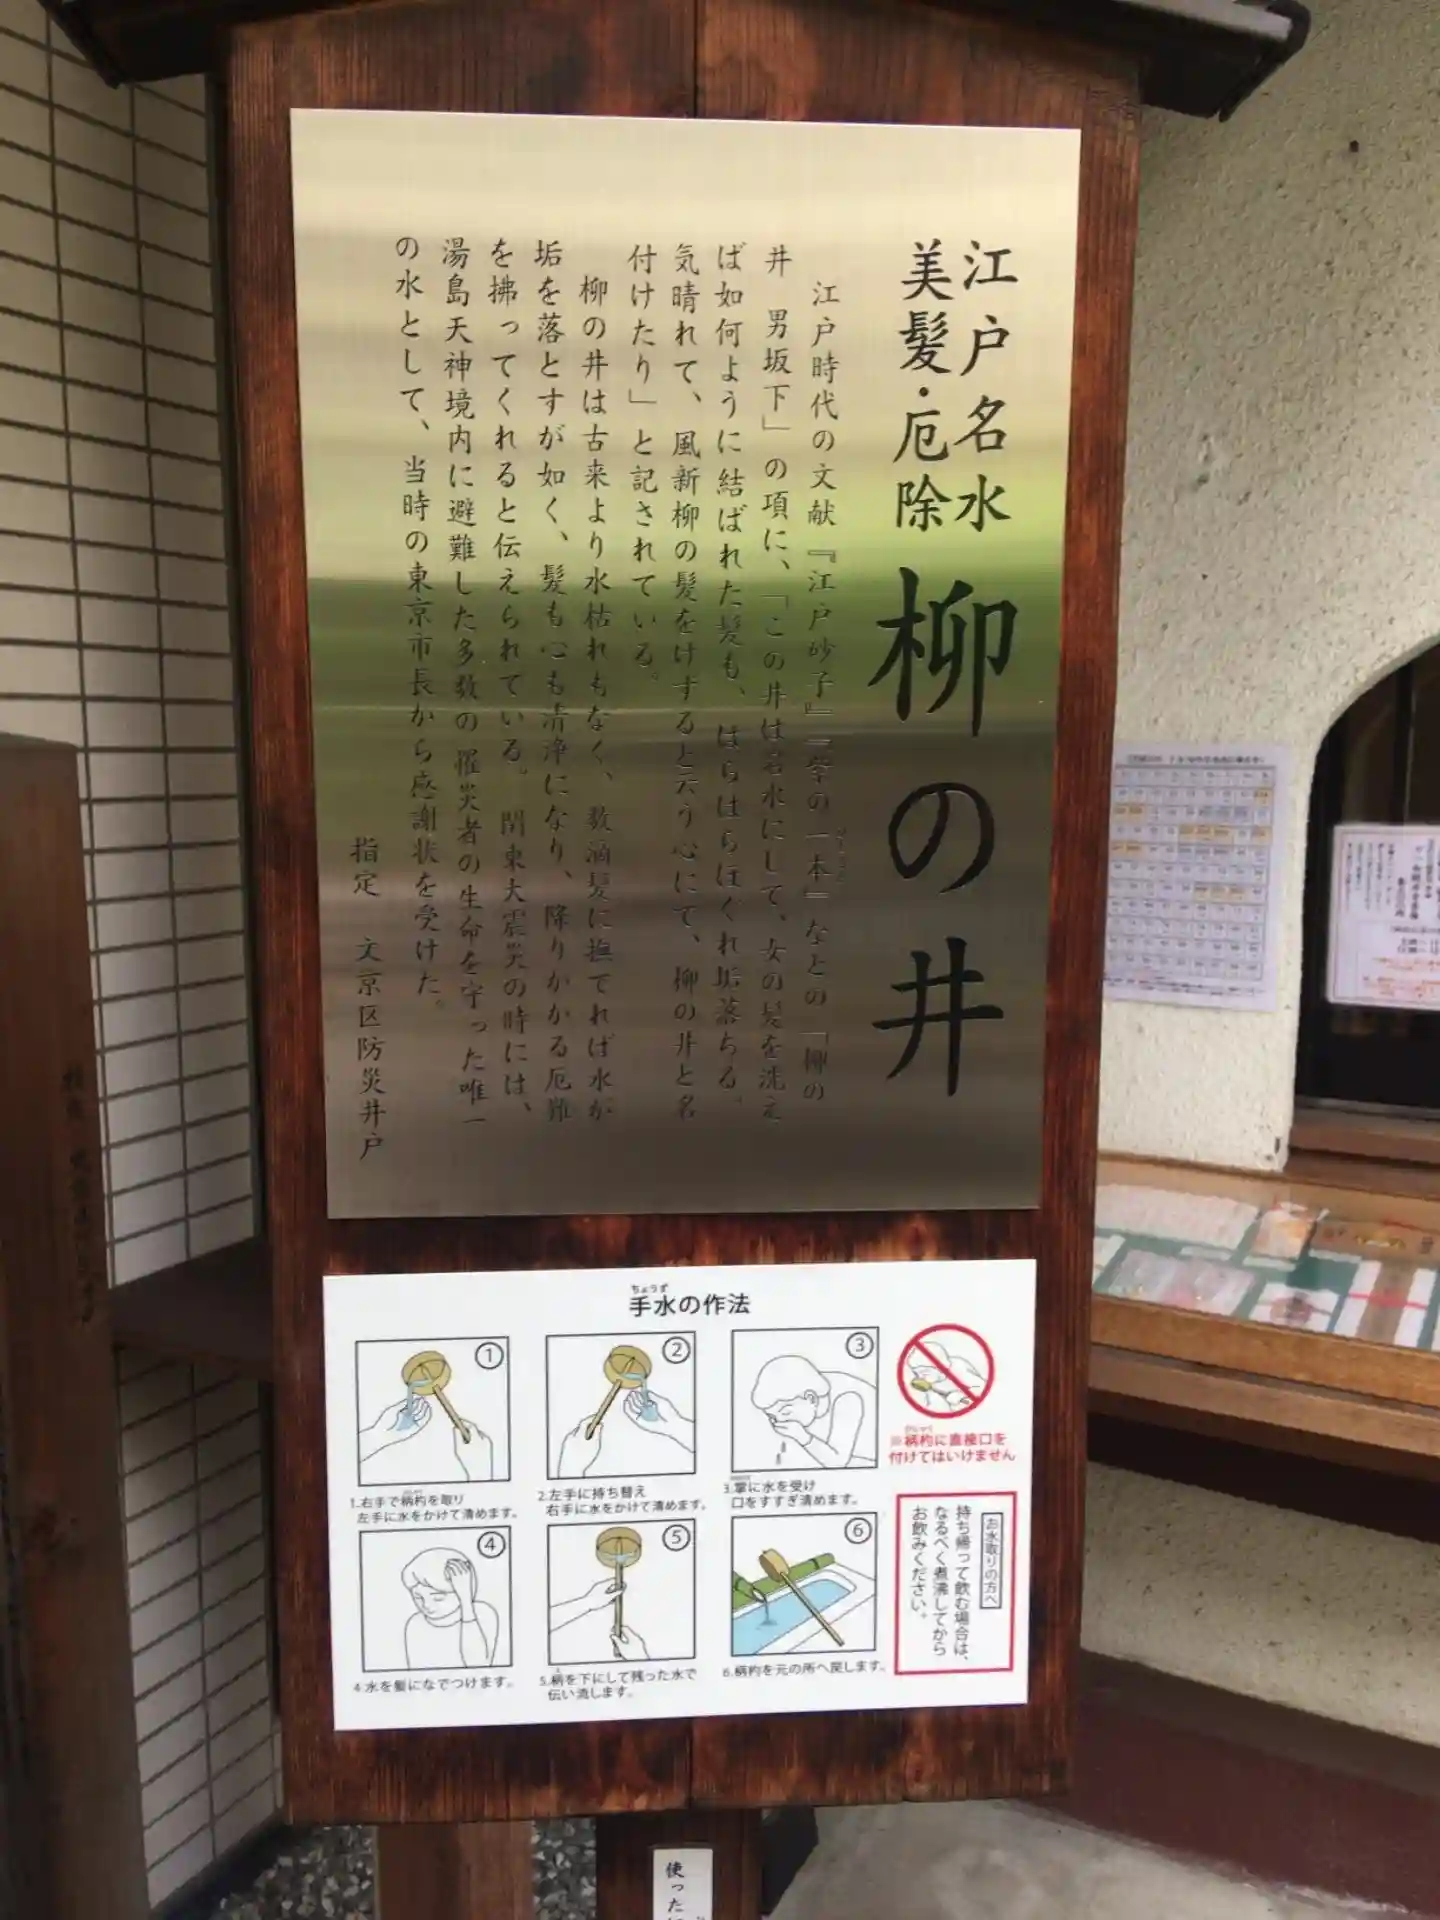 江戸名水
美髪・厄除
柳の井
江戸時代の文献『江戸砂子』『紫の一本』などの「柳の
井　男坂下」の項に、「この井は名水にして、女の髪を洗え
ば如何ように結ばれた髪も、はらはらほぐれ垢落ちる。
気晴れて、風新柳の髪をけずると云う心にて、柳の井と名
付けたり」と記されている。
柳の井は古来より水枯れもなく、数滴髪に撫でれば水が
垢を落とすが如く、髪も心も清浄になり、降りかかる厄難
を拂ってくれると伝えられている。関東大震災の時には、
湯島天神境内に避難した多数の罹災者の生命を守った唯一
の水として、当時の東京市長から感謝状を受けた。
指定　文京区防災井戸
ちょうず
手水の作法
①
②
③
1.右手で柄杓を取り
左手に水をかけて清めます。
2.左手に持ち替え
右手に水をかけて清めます。
3.掌に水を受け
口をすすぎ清めます。
※柄杓に直接口を
付けてはいけません
④
⑤
⑥
4.水を髪になでつけます。
5.柄を下にして残った水で
伝い流します。
6.柄杓を元の所へ戻します。
お水取りの方へ
持ち帰って飲む場合は、
なるべく煮沸してから
お飲みください。
使った